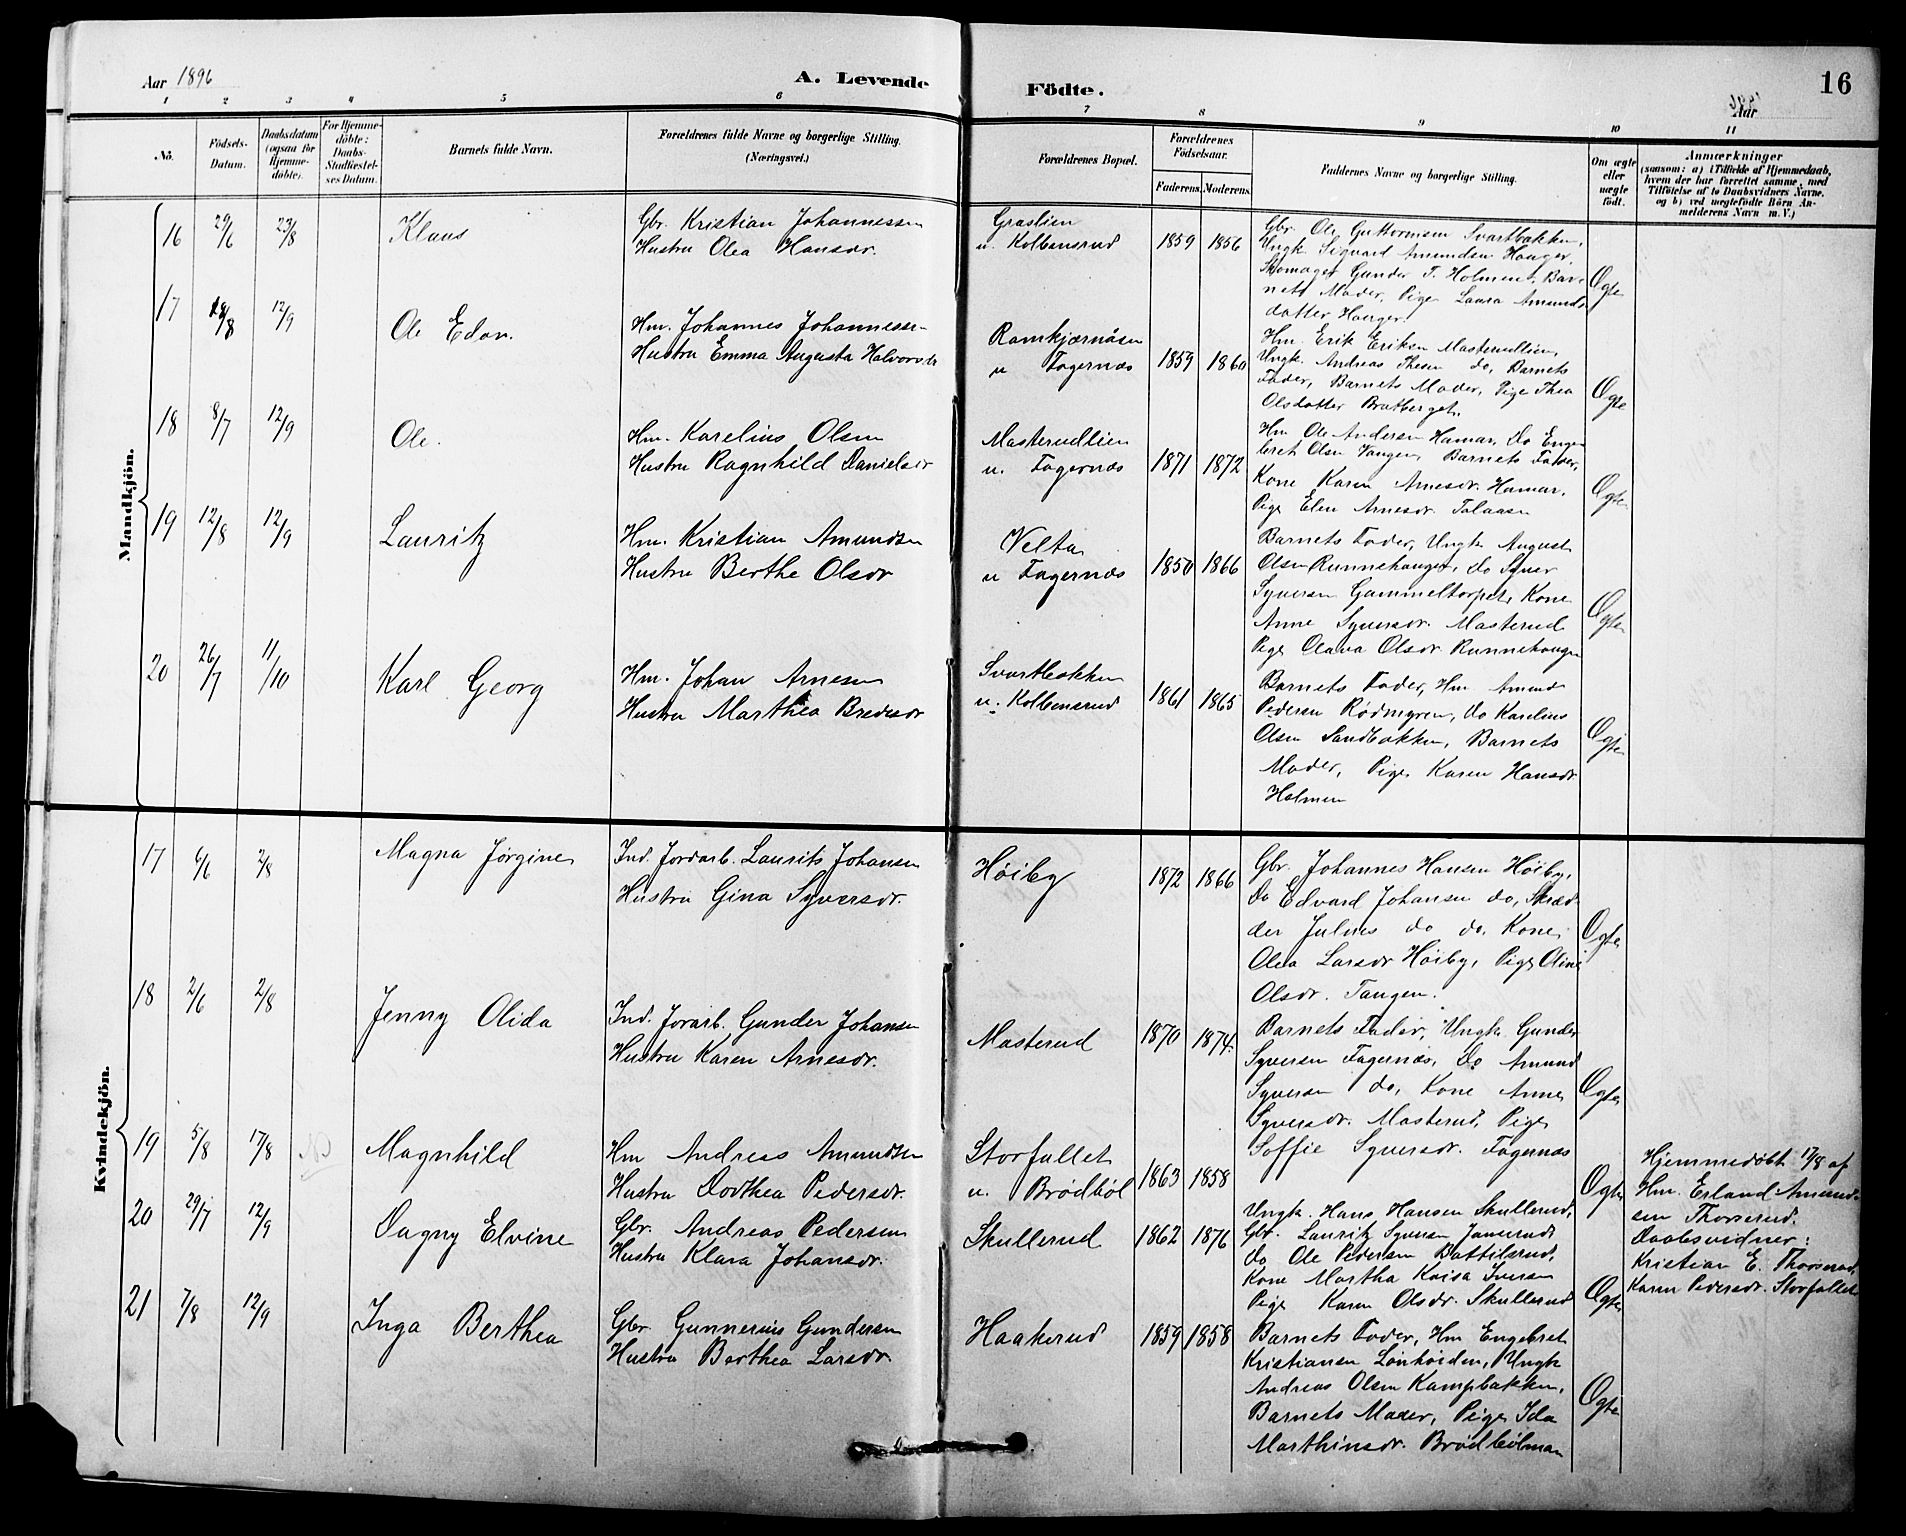 Aar 1896
A. Levende
Födte.
16
Aar
1 2 3 4 5 6 7 8 9 10 11
No.
Födsels-
Datum.
Daabsdatum
(ogsaa for
Hjemme-
döbte).
For Hjemme-
döbte:
Daabs-
Stadfæstel-
ses Datum.
Barnets fulde Navn.
Forældrenes fulde Navne og borgerlige Stilling.
(Næringsvei.)
Forældrenes Bopæl.
Forældrenes
Födselsaar.
Faderens. Moderens.
Faddernes Navne og borgerlige Stilling.
Om ægte
eller
uægte
födt.
Anmærkninger
(saasom: a) i Tilfælde af Hjemmedaab,
hvem der har forrettet samme, med
Tilföielse af to Daabsvidners Navne,
og b) ved uægtefödte Börn An-
melderens Navn m. V.)
Mandkjön.
16 29/6 23/8 Klaus
Gbr. Kristian Johannessen
Hustru Olea Hansdr.
Graslien
u. Kolbensrud 1859 1856
Gbr. Ole Guttormsen Svartbakken,
Ungk. Sigvard Amundsen Hauger,
Skomager Gunder T. Holmen, Bar-
nets Moder, Pige Laura Amunds-
datter Hauger.
Ægte
17 18/8 12/9 Ole Edon.
Hm. Johannes Johannessen
Hustru Emma Augusta Halvorsdr
Ramkjærnåsen
u Fagernæs 1859 1860
Hm. Erik Eriksen Masterudlien,
Ungk. Andreas Thesen do, Barnets
Fader, Barnets Moder, Pige Thea
Olsdatter Bratberget.
Ægte
18 8/7 12/9 Ole.
Hm. Karelius Olsen
Hustru Ragnhild Danielsdr
Masterudlien
u. Fagernæs 1871 1872
Hm Ole Andersen Hamar, Do Enge-
bret Olsen Vangen, Barnets Fader,
Kone Karen Arnesdr. Hamar,
Pige Elen Arnesdr. Talaasen
Ægte
19 12/8 12/9 Lauritz
Hm. Kristian Amundsen
Hustru Berthe Olsdr
Velta
u Fagernæs 1850 1866
Barnets Fader, Ungk August
Olsen Runnehaugen, Do Syver
Syversen Gammeltorpet, Kone
Anne Syversdr. Masterud
Pige Olava Olsdr Runnehaugen
Ægte
20 26/7 11/10 Karl Georg
Hm. Johan Arnesen
Hustru Marthea Bredesdr
Svartbakken
u. Kolbensrud 1861 1865
Barnets Fader, Hm Amund
Pedersen Rödmyren, Do Karelius
Olsen Sandbakken, Barnets
Moder, Pige Karen Hansdr
Holmen
Ægte
Kvindekjön.
17 6/6 2/8 Magna Jørgine
Ind. Jordarb. Laurits Johansen
Hustru Gina Syversdr.
Høiby 1872 1866
Gbr. Johannes Hansen Höiby,
Do Edvard Johansen do, Skræd-
der Julius do do, Kone
Olea Larsdr Høiby, Pige Oline
Olsdr. Tangen.
Ægte
18 2/6 2/8 Jenny Olida
Ind. Jorarb. Gunder Johansen
Hustru Karen Arnesdr.
Masterud 1870 1874.
Barnets Fader, Ungk Gunder
Syversen Fagernæs, Do Amund
Syversen do, Kone Anne
Syversdr. Masterud, Pige
Soffie Syversdr. Fagernæs
Ægte
19 5/8 17/8 Magnhild
Hm Andreas Amundsen
Hustru Dorthea Pedersdr.
Storfallet
u. Brödböl 1863 1858
Ægte
Hjemmedøbt 17/8 af
Hm. Erland Amund-
sen Thorserud.
Daabsvidner:
Kristian E. Thorserud,
Karen Pedersdr. Storfallet
20 29/7 12/9 Dagny Elvine
Gbr. Andreas Pedersen
Hustru Klara Johansdr.
Skullerud 1862 1876
Ungk. Hans Hansen Skullerud,
Gbr. Lauritz Syversen Janserud,
Do Ole Pedersen Battilsrud,
Kone Martha Kaisa Iversen
Pige Karen Olsdr. Skullerud
Ægte
21 7/8 12/9 Inga Berthea
Gbr Gunnerius Gundersen
Hustru Berthea Larsdr.
Haakerud 1859 1858
Barnets Fader, Hm Engebret
Kristiansen Lönhöiden, Ungk
Andreas Olsen Kampbakken,
Barnets Moder, Pige Ida
Marthinsdr. Brödbölmoen
Ægte